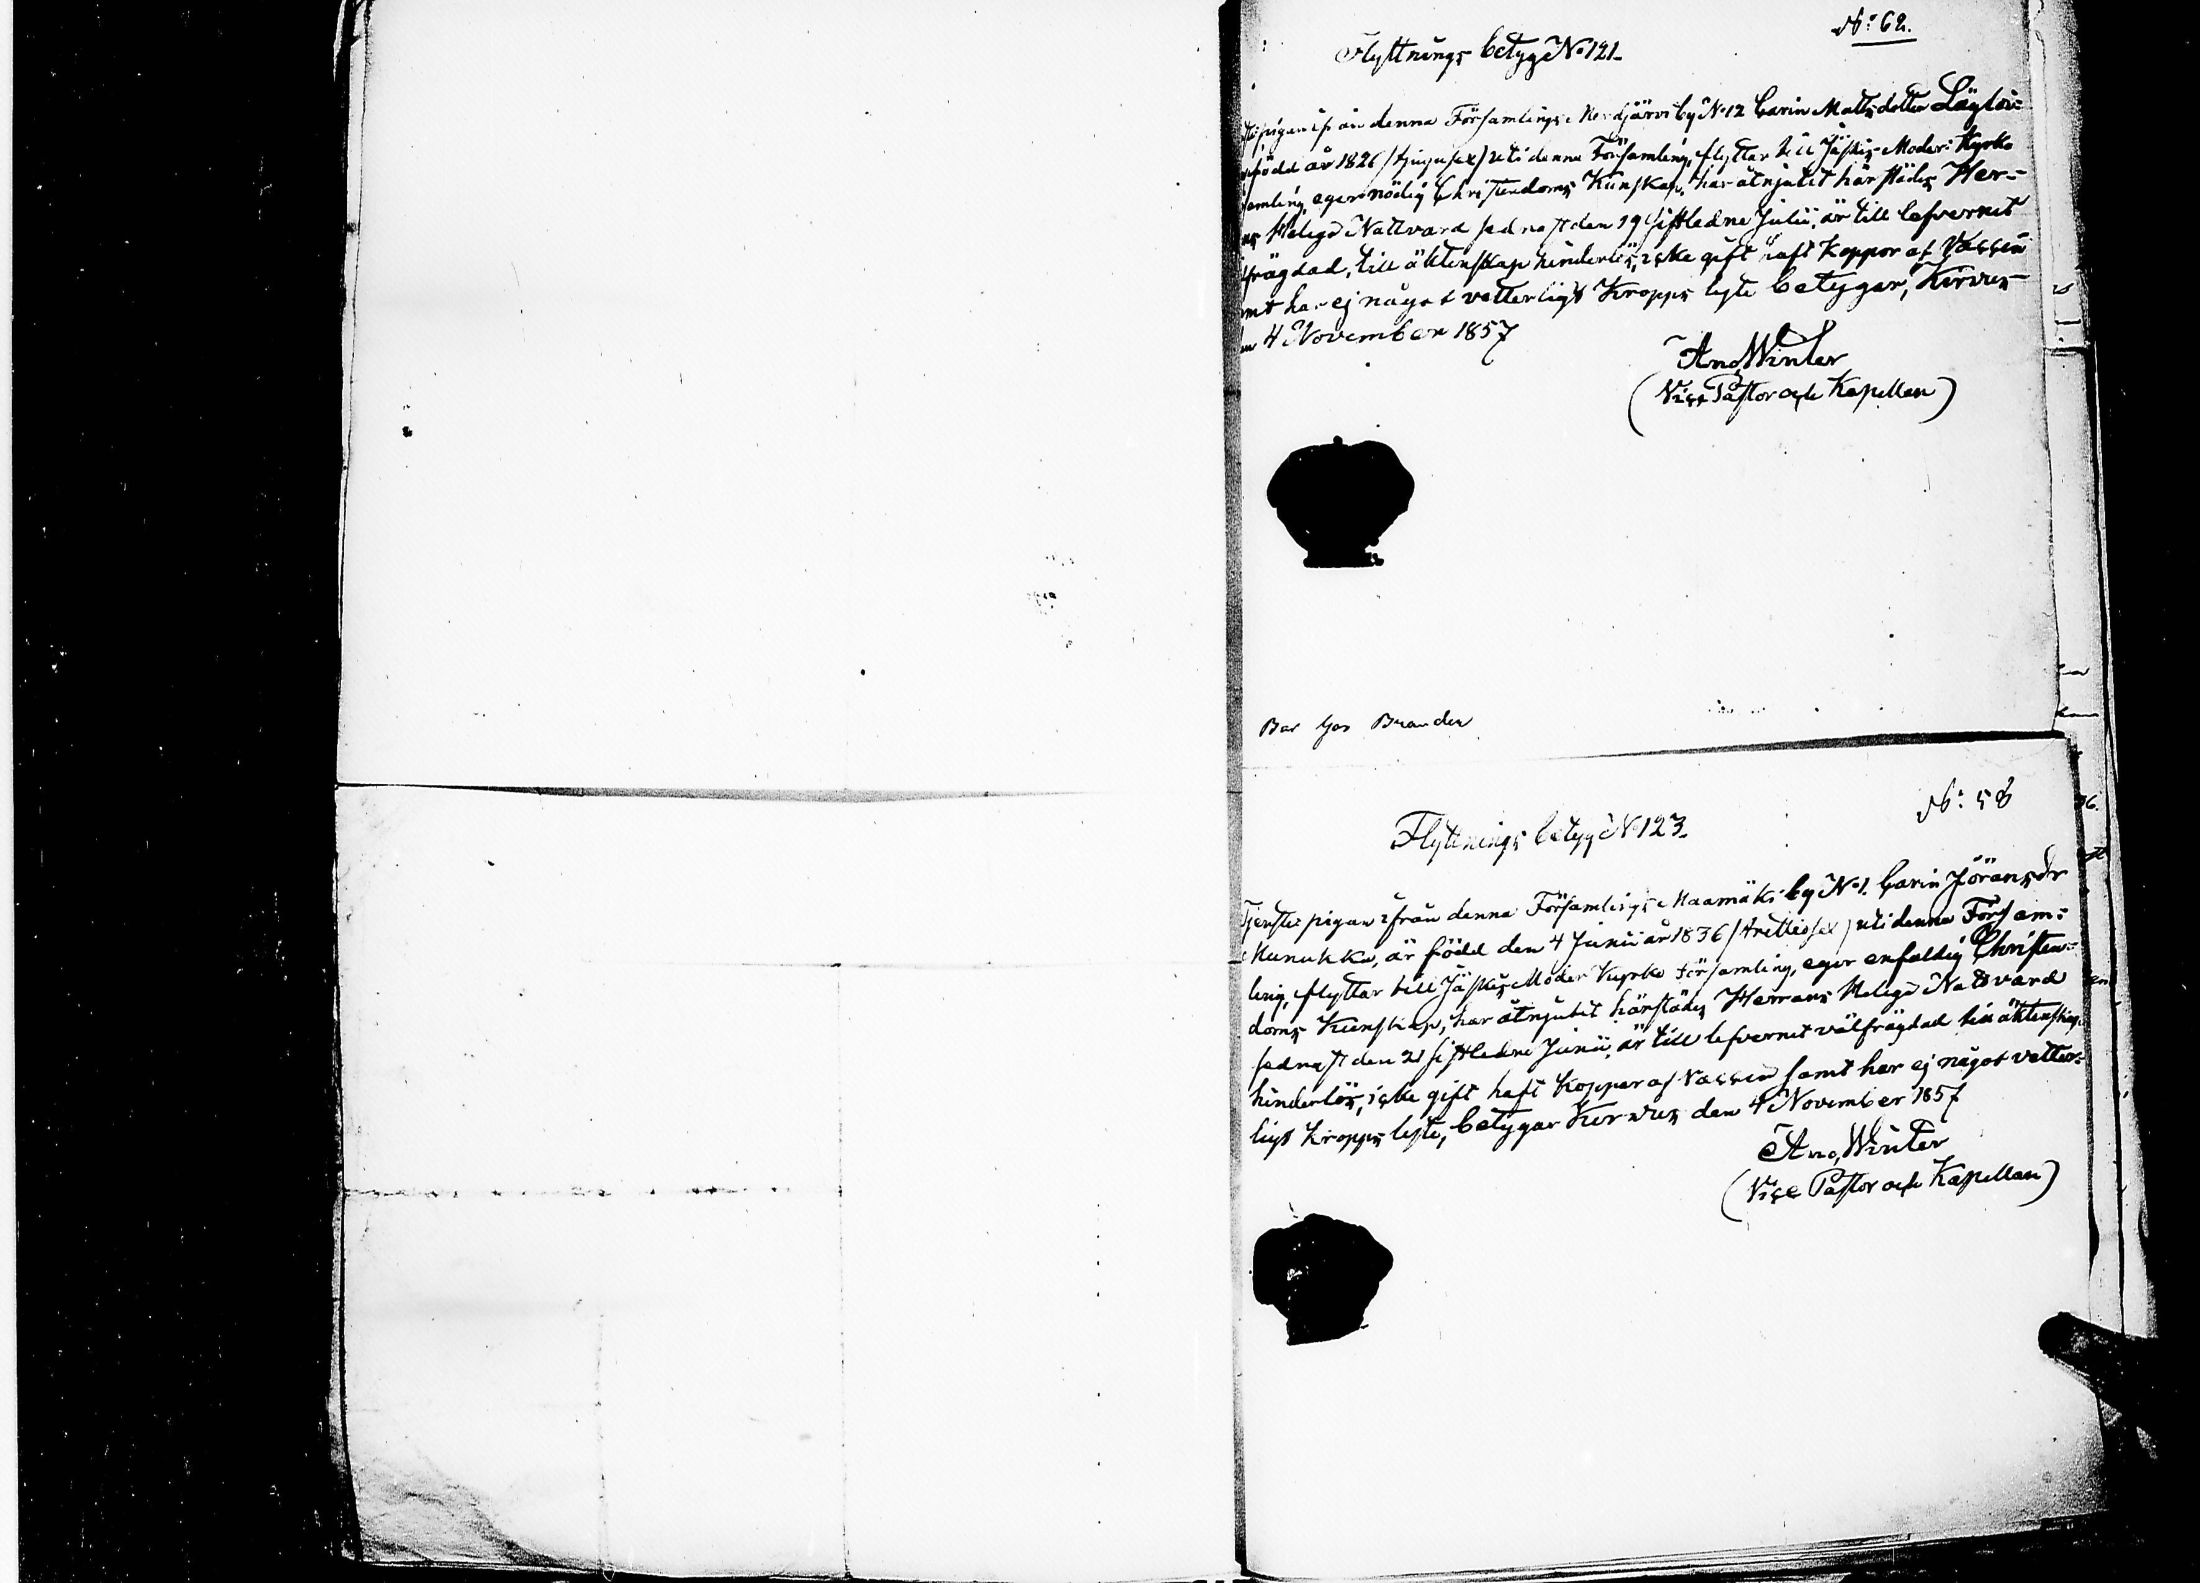 No: 62.
Flyttnings betyg No 121.
pigan ifrån denna Församlings Nordjärvi by No 12 Carin Mattsdotter Läylöi=
född år 1826 /tjugusex/ uti denna Församling, flyttar till Jäskis Moder Kyrko
amling, eger nödig Christendoms Kunskap, har åtnjutit härstädes Her=
ns Helga Nattvard sednast den 19 sistledne Julii, är till lefvernet
lfrägdad, till äktenskap hinderlös, icke gift haft Koppor af Vaccin
mt har ej något vetterligt Kropps lyte betygar, Kirvus
n 4 November 1857
And. Winter
(Vice Pastor och Kapellan)
Bar Gos Brander
No: 58
Flyttnings betyg No 123.
Tjenste pigan ifrån denna Församlings Maamäki by No 1. Carin Jöransdr
Munukka, är född den 4 Junii år 1836 /trettiosex/ uti denna Försam=
ling, flyttar till Jäskis Moder Kyrko Församling, eger enfaldig Christen=
doms Kunskap, har åtnjutit härstädes Herrans Helga Nattvard
sednast den 21 sistledne Junii, är till lefvernet välfrägdad till äktenskap
hinderlös, icke gift haft Koppor af Vaccin samt har ej något vetter=
ligt Kropps lyte, betygar Kirvus den 4 November 1857
And. Winter
(Vice Pastor och Kapellan)